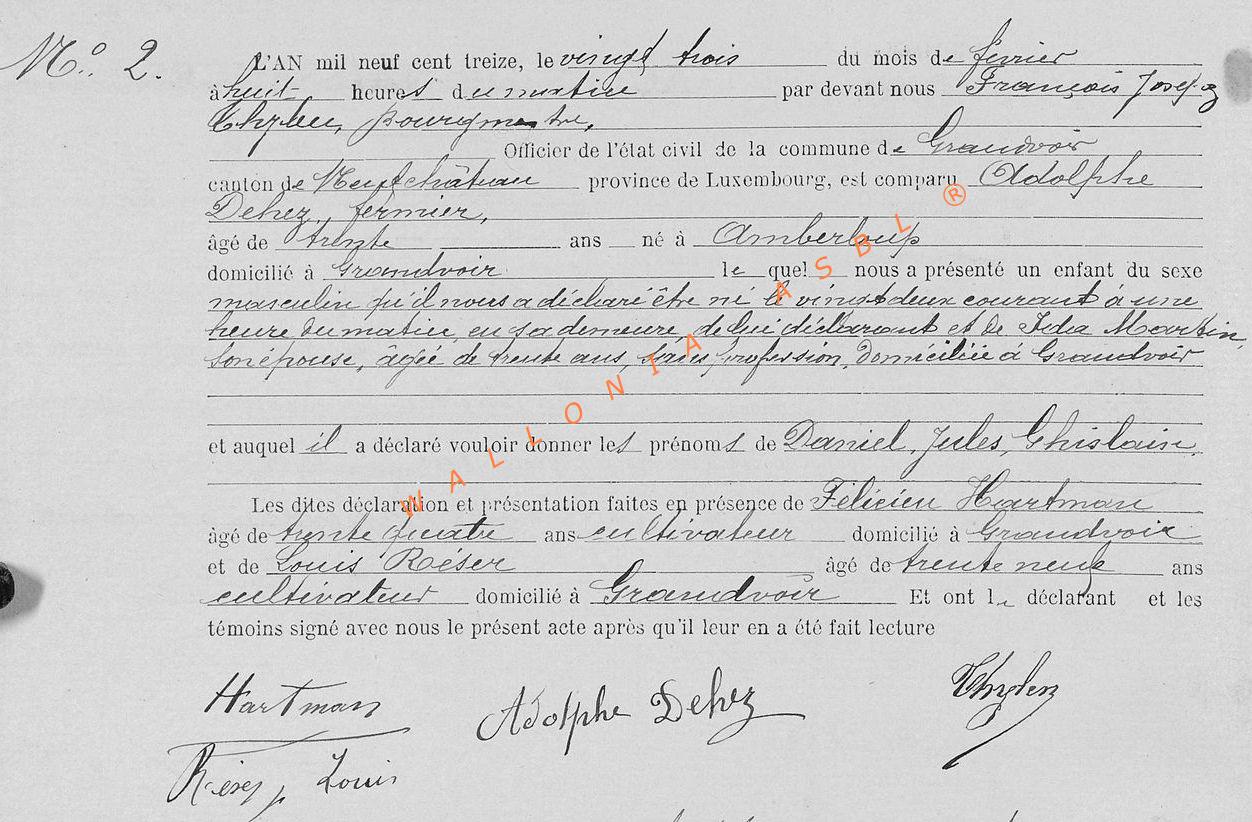 N.º 2.
L'AN mil neuf cent treize, le vingt trois du mois de février
à huit heures du matin par devant nous François Joseph
bourgmestre,
Officier de l'état civil de la commune de Grandvoir
canton de Neufchâteau province de Luxembourg, est comparu Adolphe
Dehez, fermier,
âgé de trente ans né à Amberloup
domicilié à Grandvoir lequel nous a présenté un enfant du sexe
masculin qu'il nous a déclaré être né le vingt deux courant à une
heure du matin, en sa demeure, de lui déclarant et de Ida Martin,
son épouse, âgée de trente ans, sans profession, domiciliée à Grandvoir
et auquel il a déclaré vouloir donner les prénoms de Daniel, Jules, Ghislain,
Les dites déclaration et présentation faites en présence de Félicien Hartman
âgé de trente quatre ans cultivateur domicilié à Grandvoir
et de Louis Réser âgé de trente neuf ans
cultivateur domicilié à Grandvoir Et ont le déclarant et les
témoins signé avec nous le présent acte après qu'il leur en a été fait lecture
Hartman Adolphe Dehez
Louis
WALLONIA ASBL ®